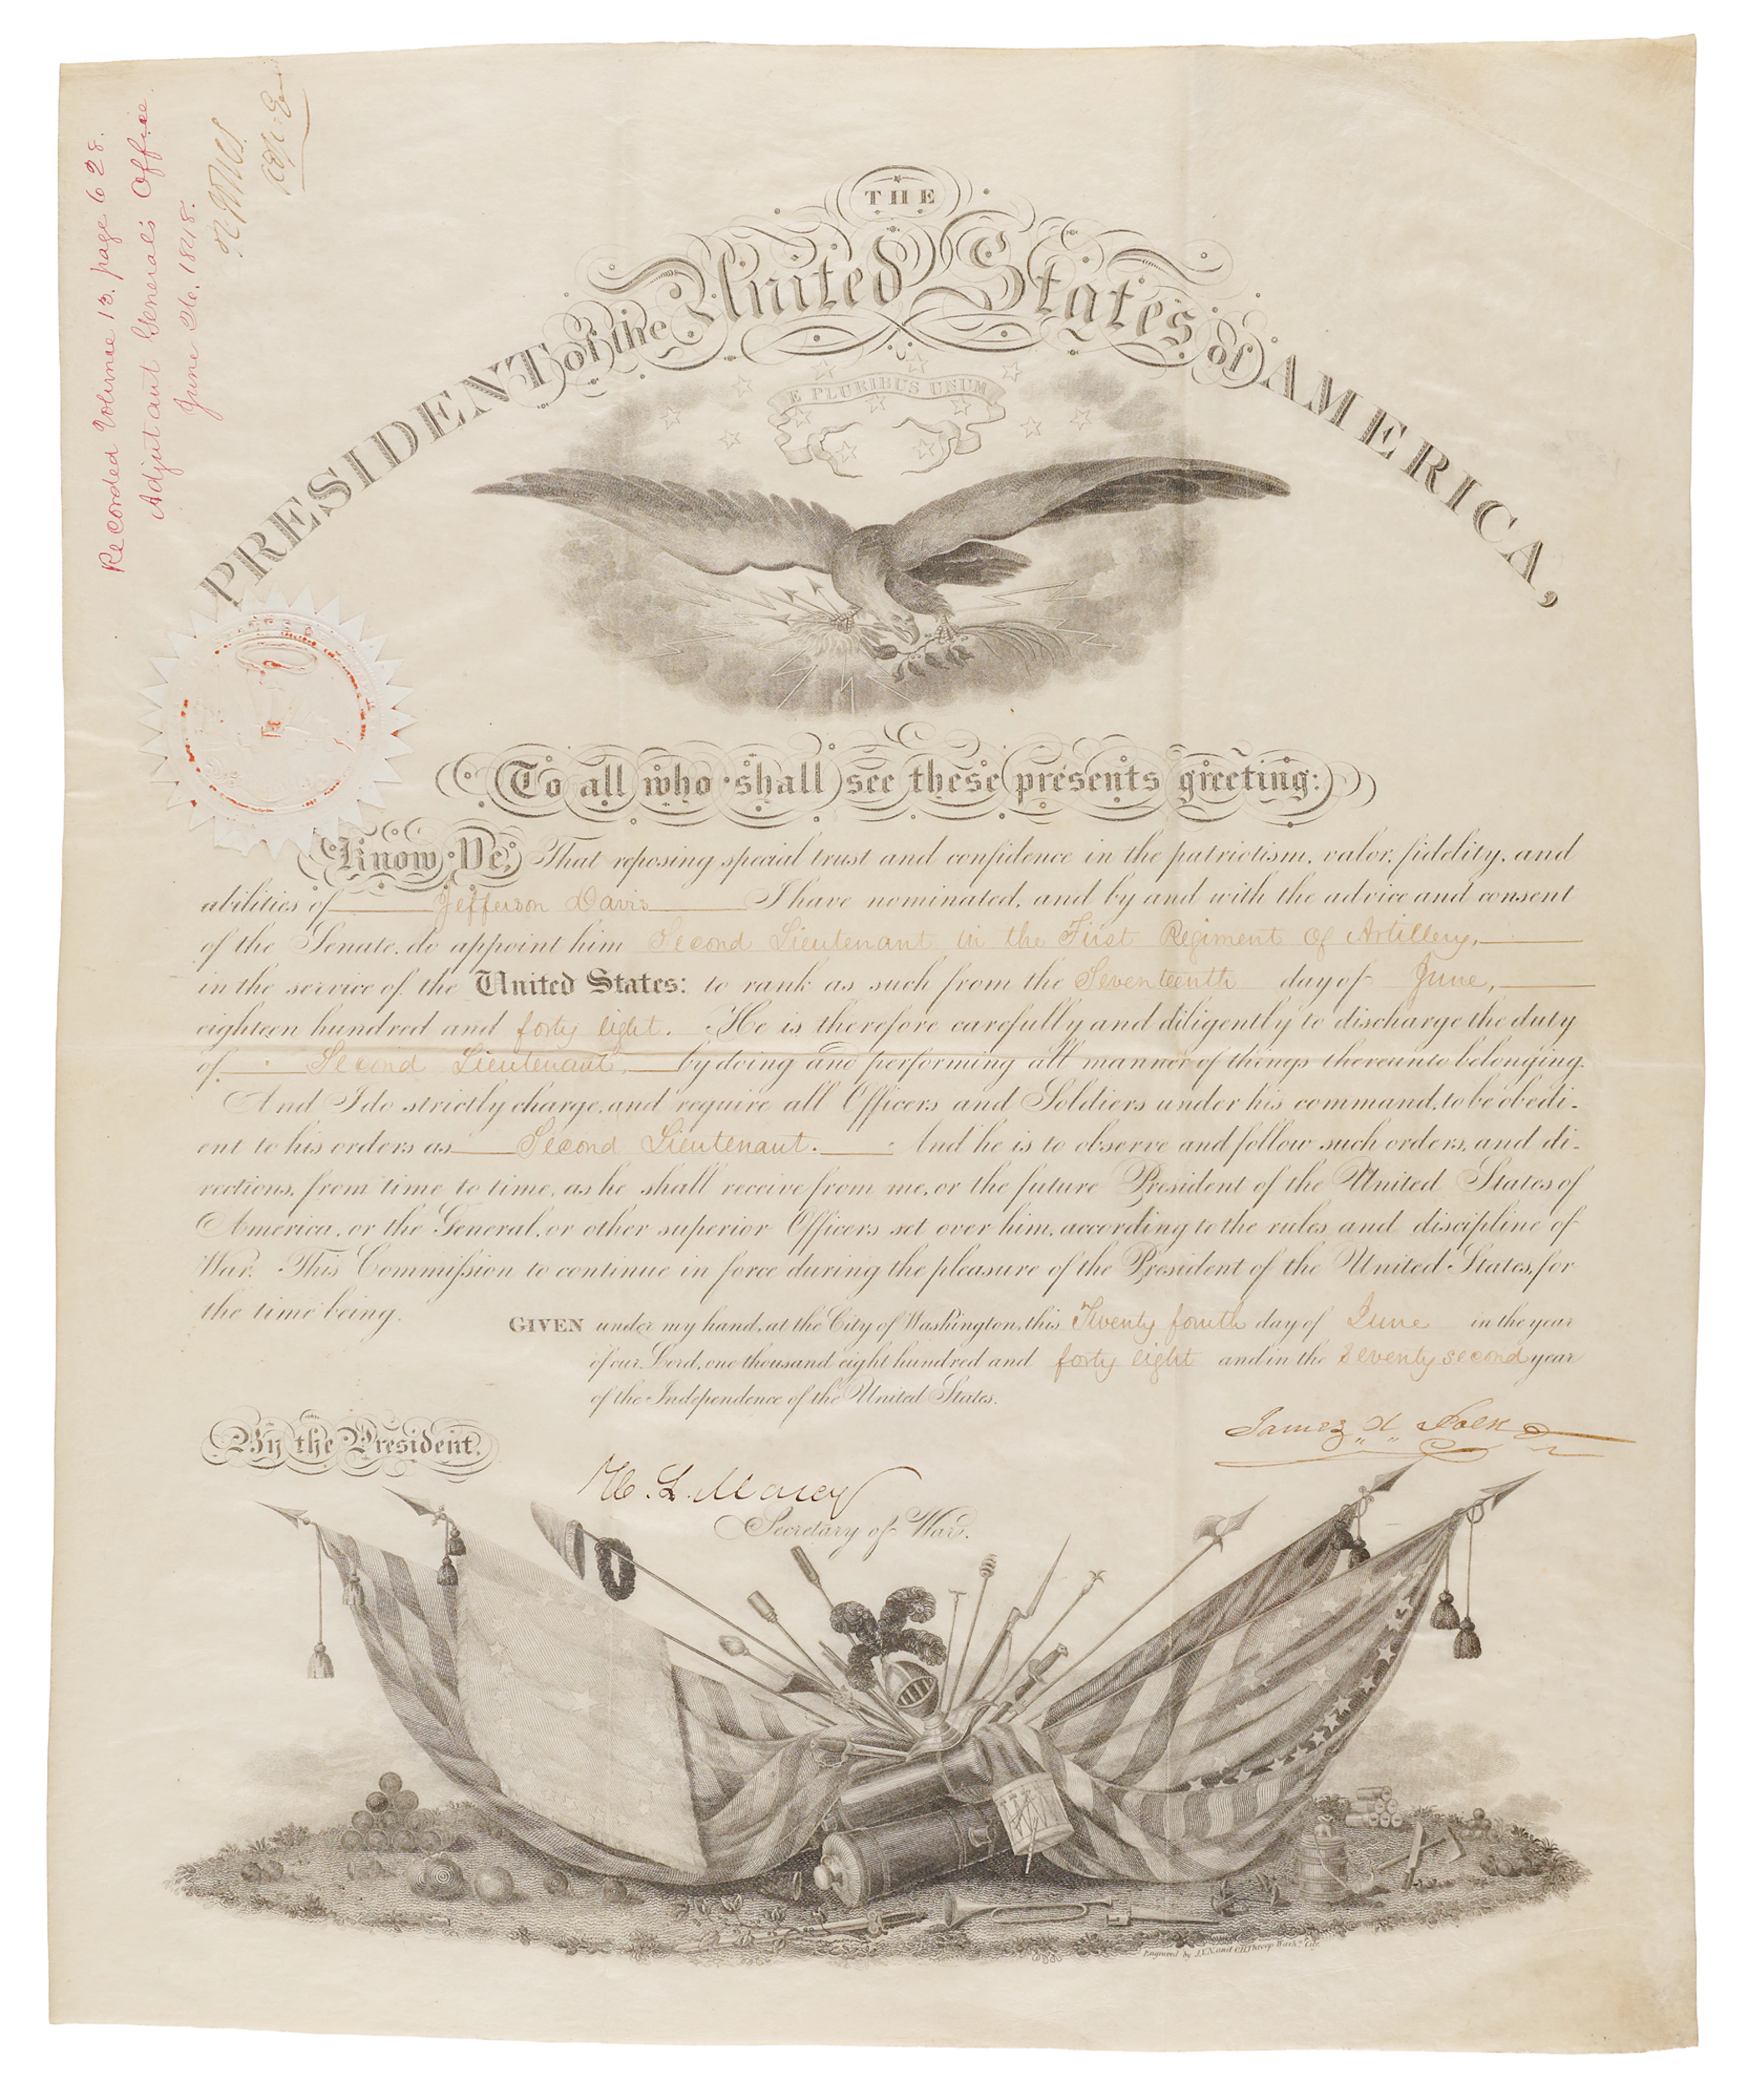 Recorded Volume 13. page 628.
Adjutant General's Office.
June 26. 1848.
THE
PRESIDENT of the United States of AMERICA,
E PLURIBUS UNUM
To all who shall see these presents greeting:
Know Ye, That reposing special trust and confidence in the patriotism, valor, fidelity, and
abilities of Jefferson Davis I have nominated, and by and with the advice and consent
of the Senate, do appoint him Second Lieutenant in the First Regiment of Artillery,
in the service of the United States: to rank as such from the Seventeenth day of June,
eighteen hundred and forty eight. He is therefore carefully and diligently to discharge the duty
of Second Lieutenant, by doing and performing all manner of things thereunto belonging.
And I do strictly charge, and require all Officers and Soldiers under his command, to be obedi-
ent to his orders as Second Lieutenant. And he is to observe and follow such orders, and di-
rections, from time to time, as he shall receive from me, or the future President of the United States of
America, or the General, or other superior Officers set over him, according to the rules and discipline of
War. This Commission to continue in force during the pleasure of the President of the United States, for
the time being.
GIVEN under my hand, at the City of Washington, this Twenty fourth day of June in the year
of our Lord, one thousand eight hundred and forty eight and in the seventy second year
of the Independence of the United States.
James K Polk
By the President.
W. L. Marcy
Secretary of War.
Engraved by J.V.N. and O.H. Throop Wash.n City